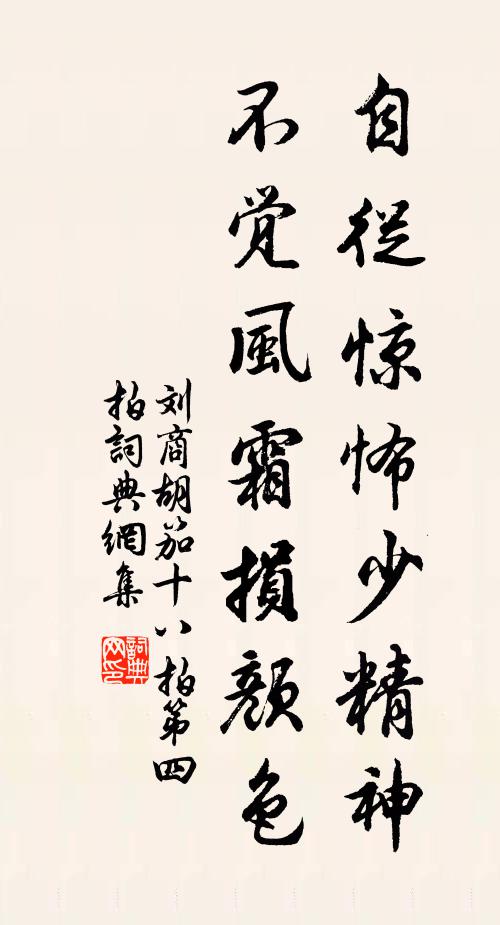 自從惊怖少精神
不觉風霜損顏色
刘商胡笳十八拍第四
拍詞典網集
詞典网印